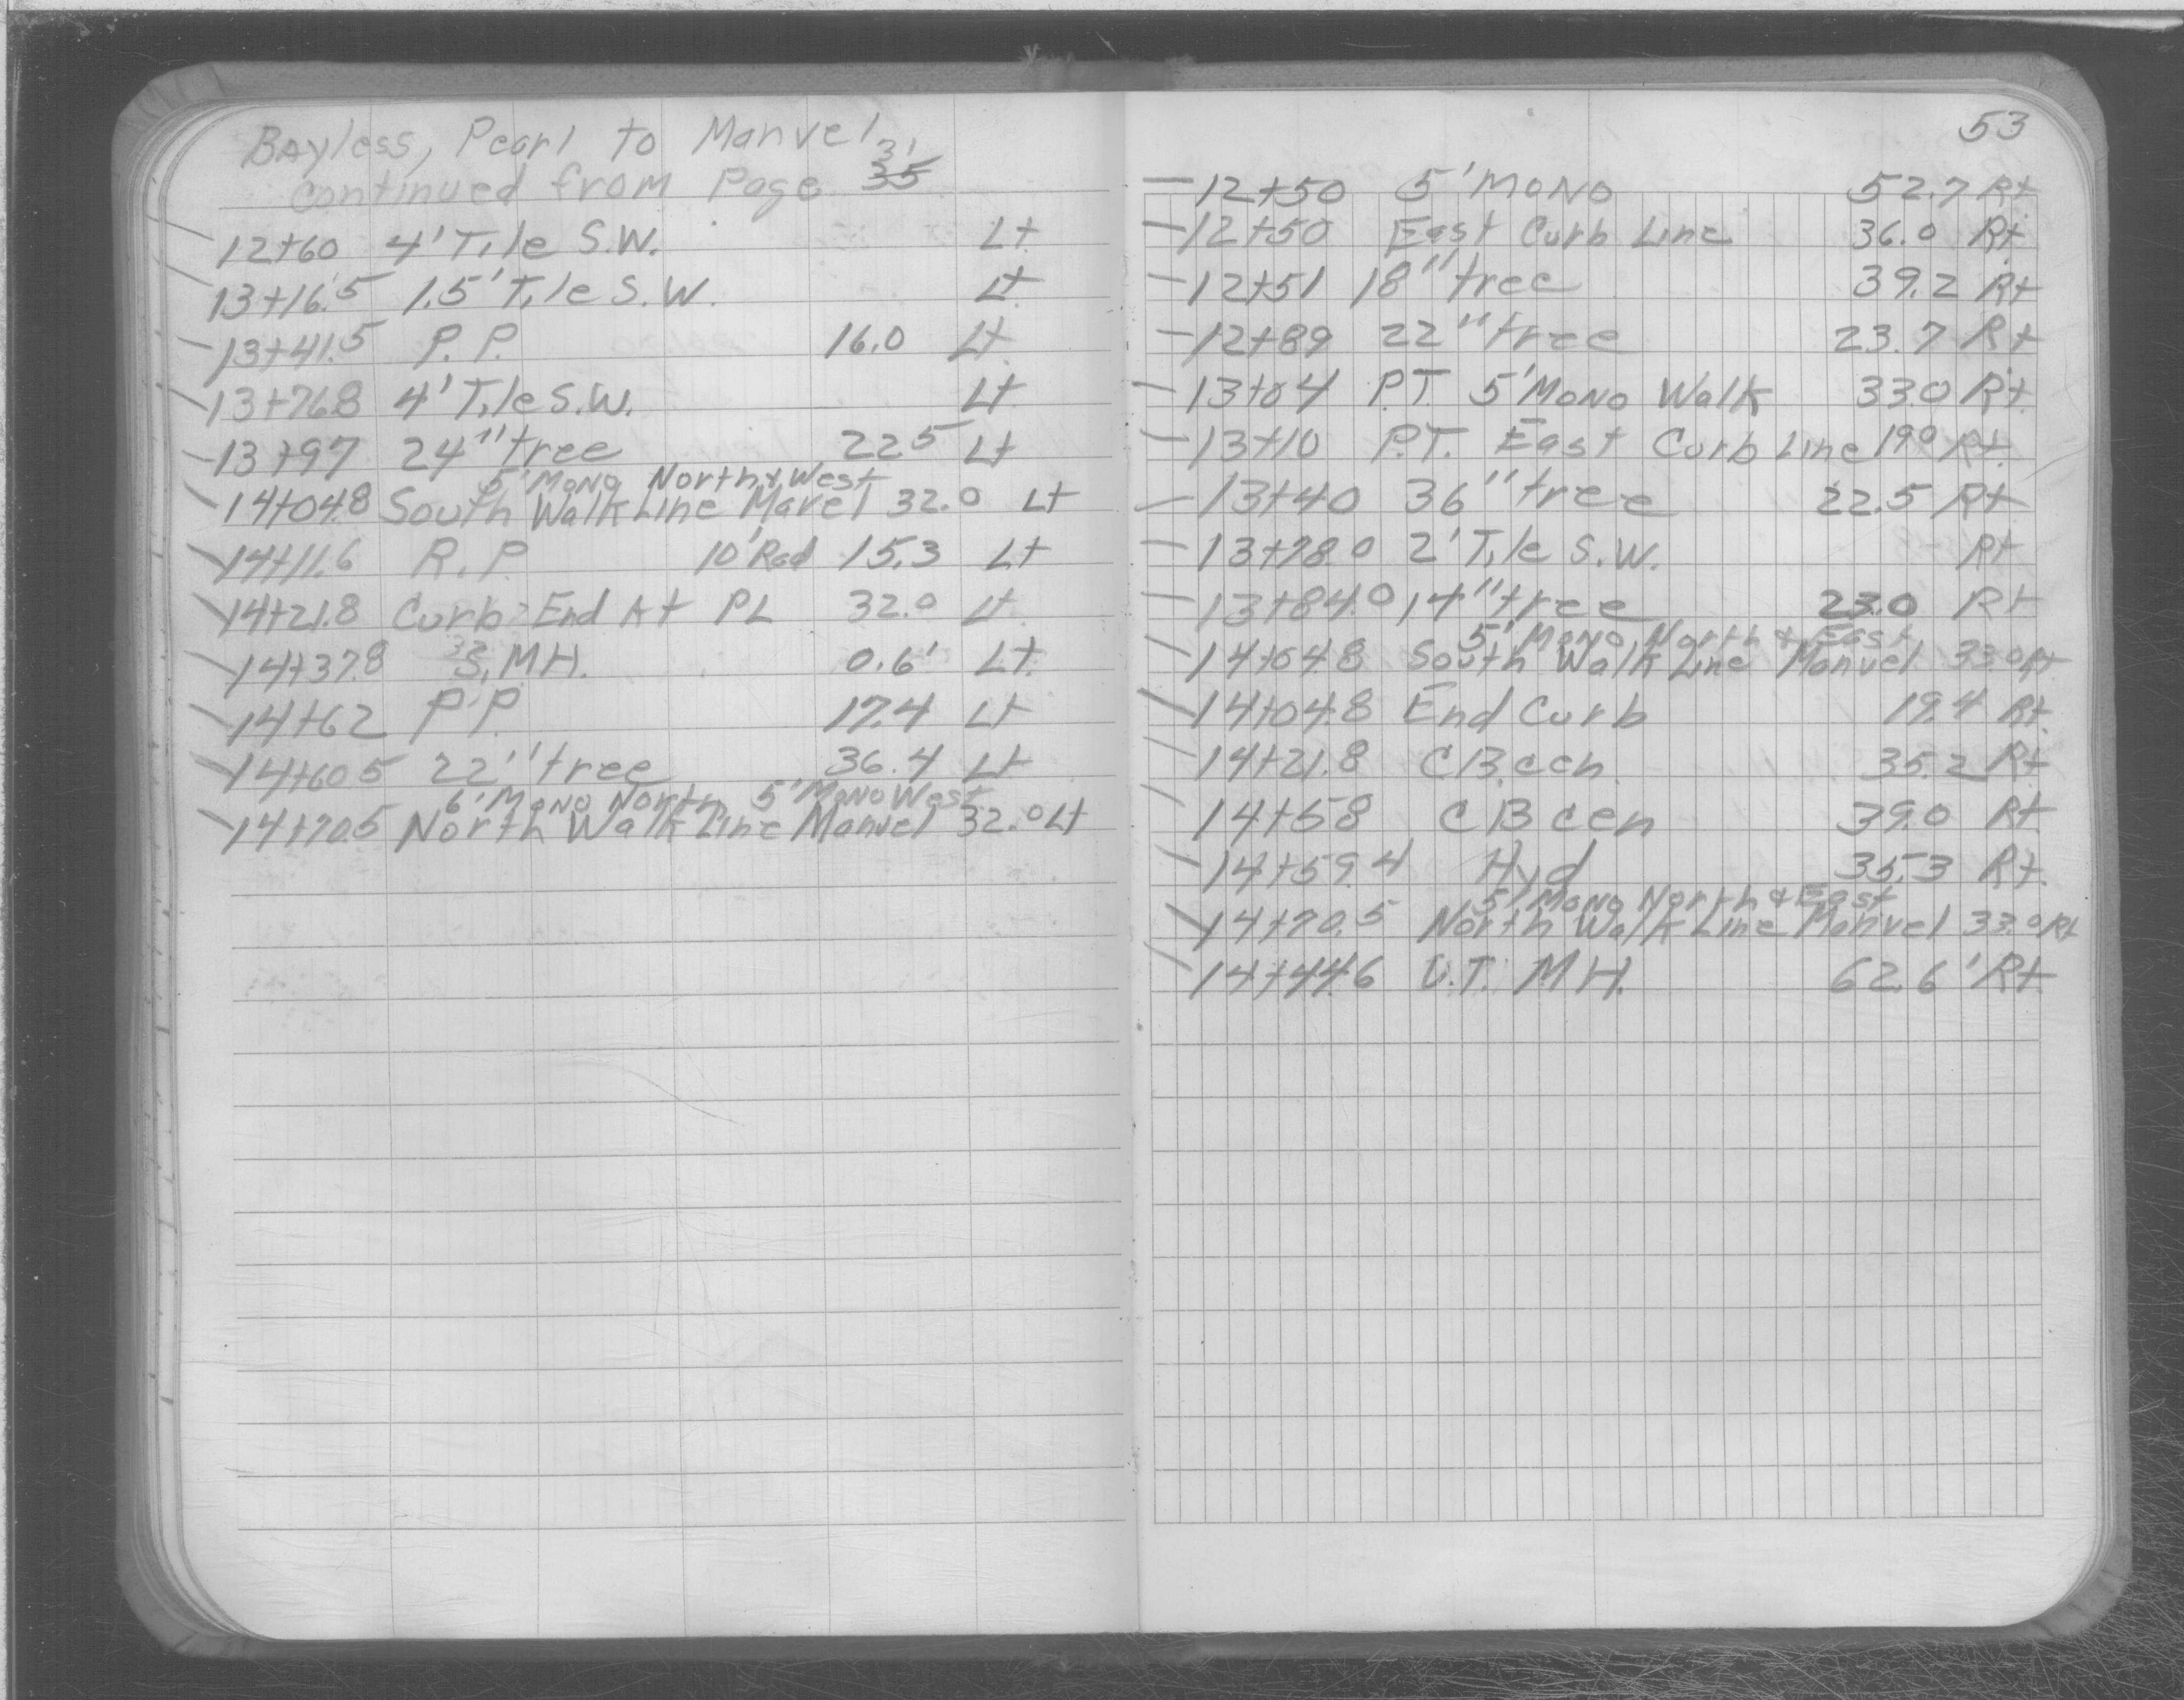 Bayless, Pearl to Manvel
31
continued from Page 35
12+60 4' Tile S.W. Lt
13+16.5 1.5' Tile S.W. Lt
13+41.5 P.P. 16.0 Lt
13+76.8 4' Tile S.W. Lt
13+97 24" tree 22.5 Lt
5' Mono North & West
14+04.8 South Walk Line Mavel 32.0 Lt
14+11.6 R.P. 10' Rad 15.3 Lt
14+21.8 Curb End At PL 32.0 Lt
14+37.8 S. MH. 0.6' Lt
14+62 P.P. 17.4 Lt
14+60.5 22" tree 36.4 Lt
6' Mono North, 5' Mono West
14+70.5 North Walk Line Manvel 32.0 Lt
53
12+50 5' Mono 52.7 Rt
12+50 East Curb Line 36.0 Rt
12+51 18" tree 39.2 Rt
12+89 22" tree 23.7 Rt
13+04 P.T. 5' Mono Walk 33.0 Rt
13+10 P.T. East Curb Line 19.0 Rt
13+40 36" tree 22.5 Rt
13+78.0 2' Tile S.W. Rt
13+84.0 14" tree 23.0 Rt
5' Mono North & East
14+04.8 South Walk Line Manvel 33.0 Rt
14+04.8 End Curb 19.4 Rt
14+21.8 C.B. cen. 35.2 Rt
14+58 C B cen 39.0 Rt
14+59.4 Hyd 35.3 Rt
5' Mono North & East
14+70.5 North Walk Line Manvel 33.0 Rt
14+44.6 U.T. M H. 62.6' Rt